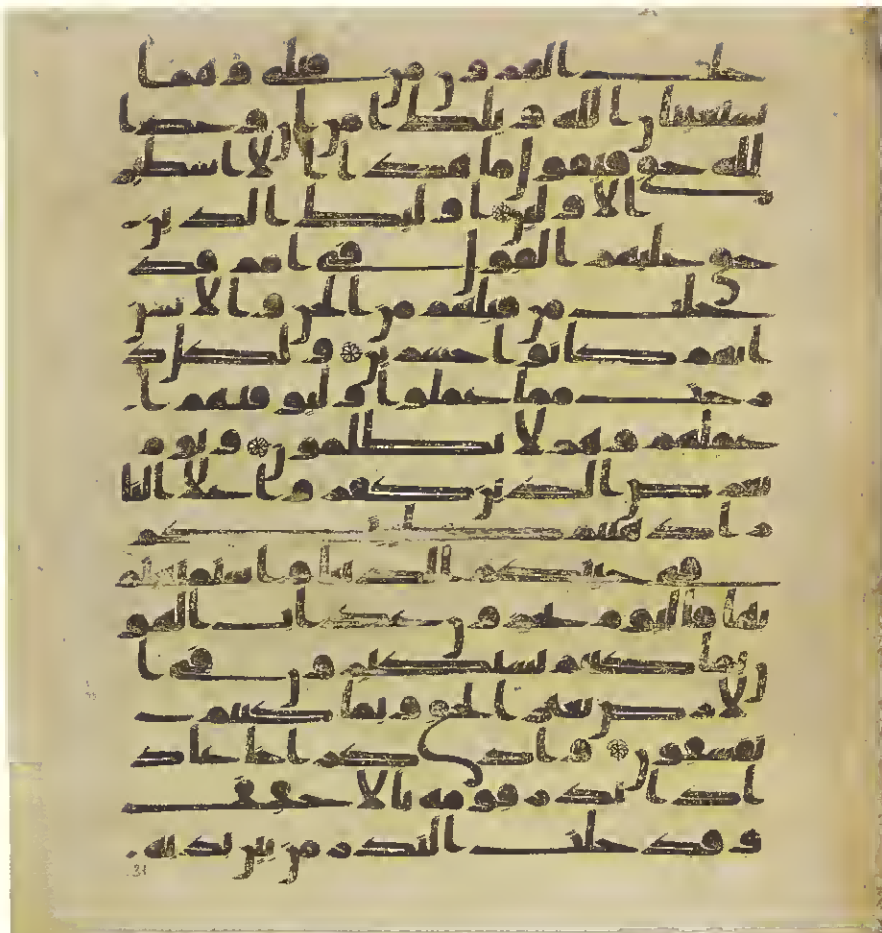 خلت القرون من قبلي وهما
يستغيثان الله ويلك امن ان وعد ا
لله حق فيقول ما هذا الا اسطير
الاولين اولئك الذين
حق عليهم القول في امم قد
خلت من قبلهم من الجن والانس
انهم كانوا خسرين ولكل د
رجت مما عملوا وليوفيهم ا
عملهم وهم لا يظلمون ويوم
يعرض الذين كفروا على النا
ر اذهبتم طيبتكم
في حياتكم الدنيا واستمتعتم
بها فاليوم تجزون عذاب الهو
ن بما كنتم تستكبرون في ا
لارض بغير الحق وبما كنتم
تفسقون واذكر اخا عاد
اذ انذر قومه بالاحقف
وقد خلت النذر من بين يديه
31